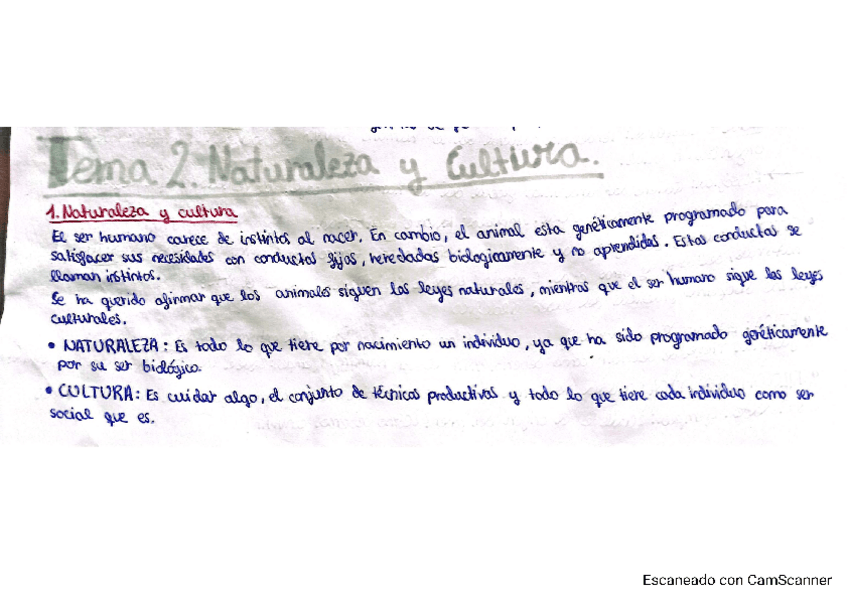 Tema 2. Naturaleza y Cultura.
1. Naturaleza y cultura
El ser humano carece de instintos al nacer. En cambio, el animal esta genéticamente programado para
satisfacer sus necesidades con conductas fijas, heredadas biologicamente y no aprendidas. Estas conductas se
llaman instintos.
Se ha querido afirmar que los animales siguen las leyes naturales, mientras que el ser humano sigue las leyes
culturales.
• NATURALEZA: Es todo lo que tiene por nacimiento un individuo, ya que ha sido programado genéticamente
por su ser biológico.
• CULTURA: Es cuidar algo, el conjunto de técnicas productivas y todo lo que tiene cada individuo como ser
social que es.
Escaneado con CamScanner